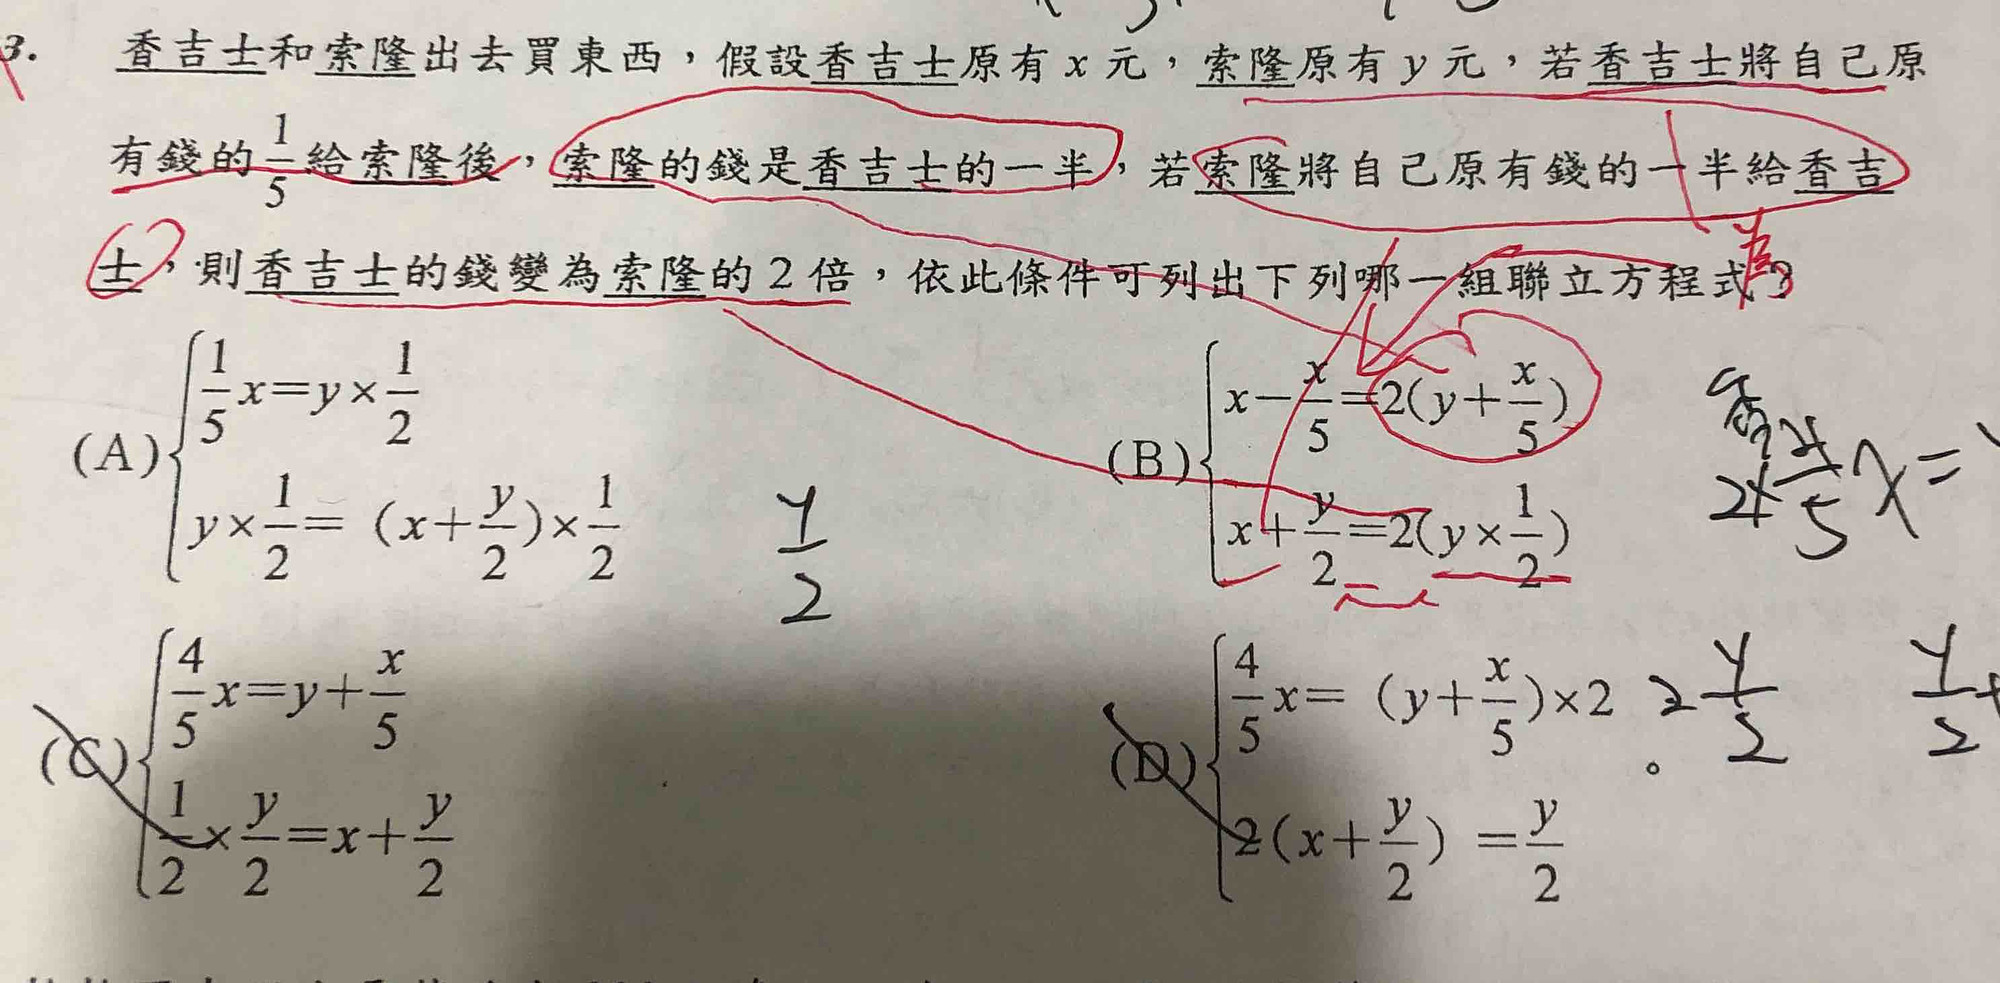 3. 香吉士和索隆出去買東西，假設香吉士原有 x 元，索隆原有 y 元，若香吉士將自己原
有錢的 1/5 給索隆後，索隆的錢是香吉士的一半，若索隆將自己原有錢的一半給香吉
士，則香吉士的錢變為索隆的 2 倍，依此條件可列出下列哪一組聯立方程式？
(A) { 1/5 x = y × 1/2
y × 1/2 = (x + y/2) × 1/2
(B) { x − x/5 = 2(y + x/5)
x + y/2 = 2(y × 1/2)
y/2
4/5 x =
(C) { 4/5 x = y + x/5
1/2 × y/2 = x + y/2
(D) { 4/5 x = (y + x/5) × 2
2(x + y/2) = y/2
。
2 y/2
y/2 +